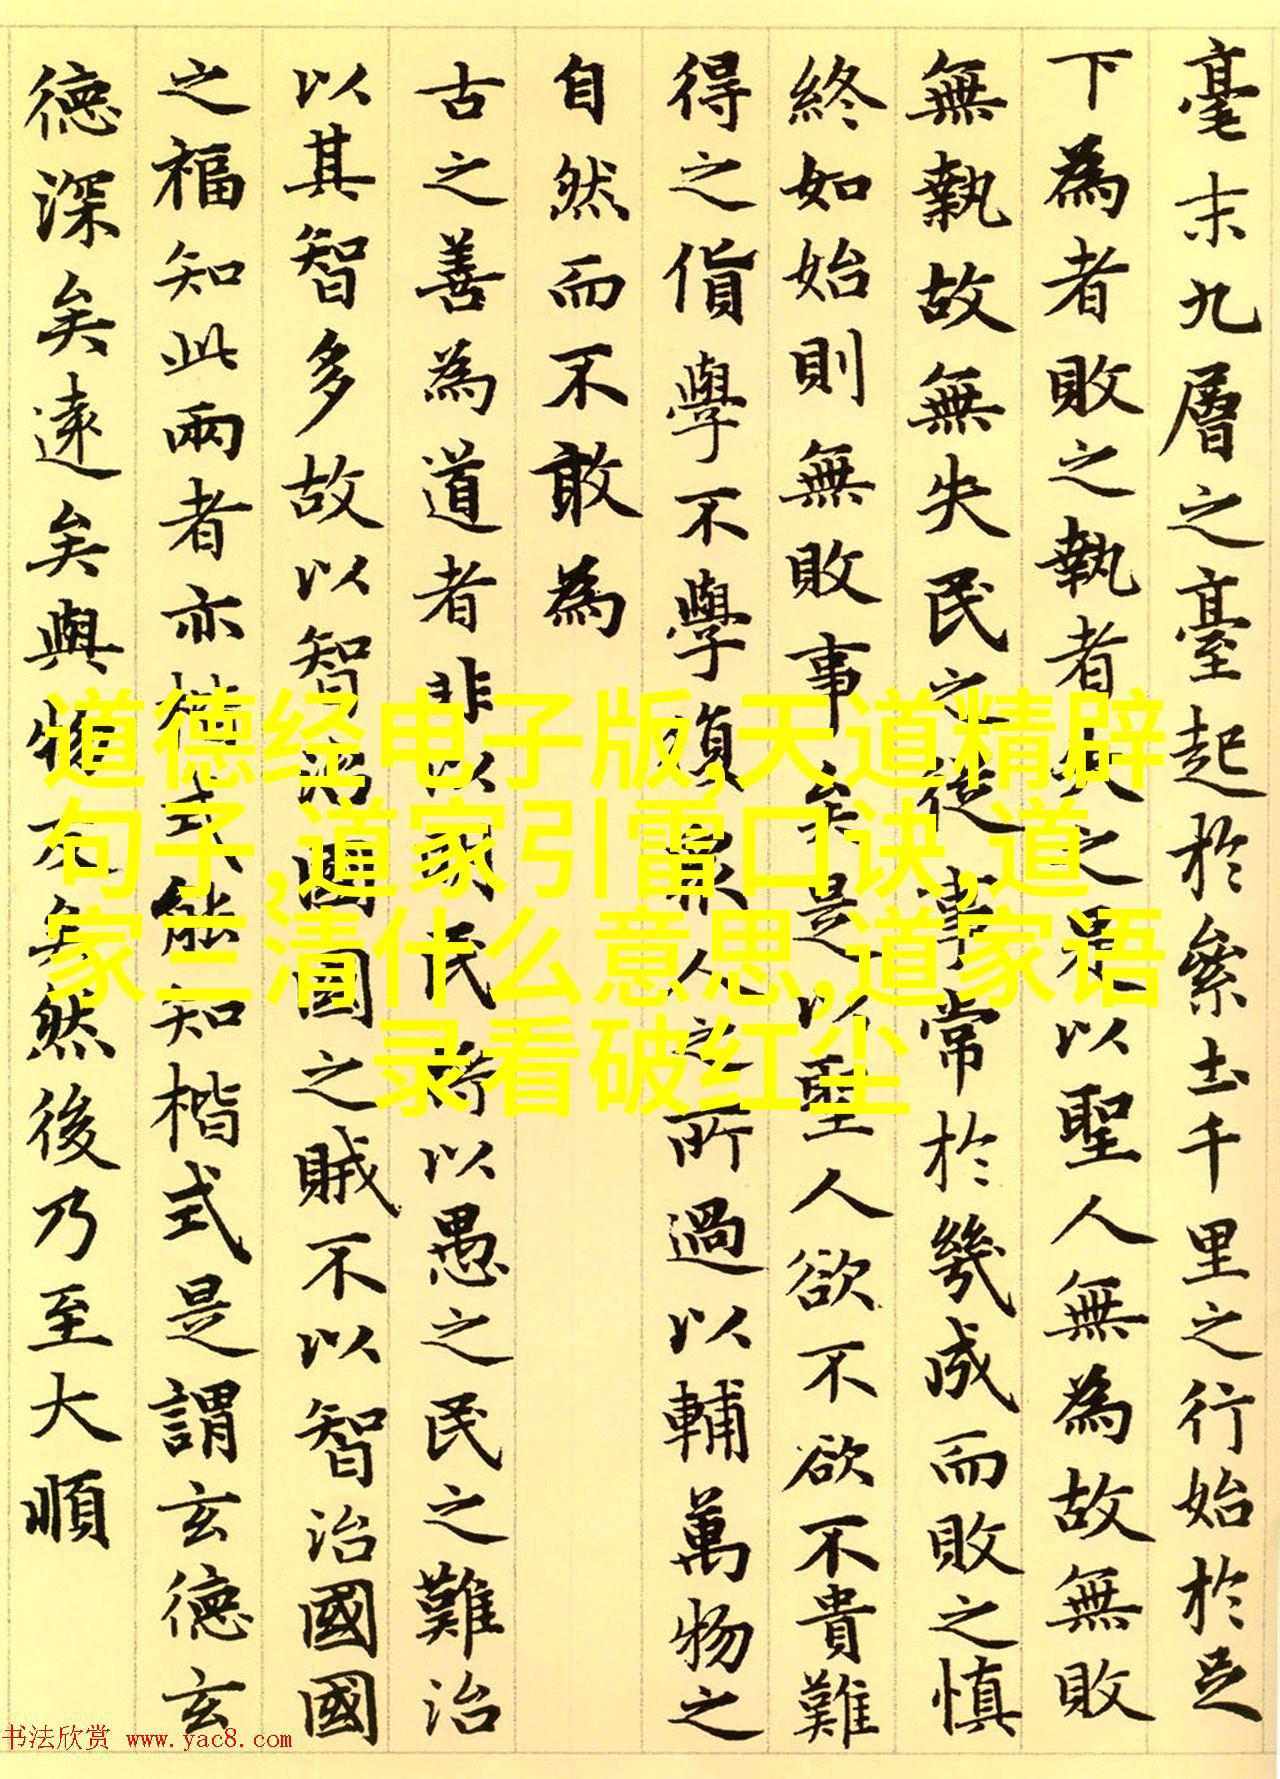 毫末九層之臺起於絫土千里之行始於足
下為者敗之執者失之是以聖人無為故無敗
無執故無失民之從事常於幾成而敗之慎
終如始則無敗事矣是以聖人欲不欲不貴難
得之貨學不學復衆人之所過以輔萬物之
自然而不敢為
古之善為道者非以明民將以愚之民之難治
以其智多故以智治國國之賊不以智治國國
之福知此兩者亦楷式能知楷式是謂玄德玄
德深矣遠矣與物反矣然後乃至大順
道德经电子版,天道精辟
句子,道家引雷口诀,道
家三清什么意思,道家语
录看破红尘
书法欣赏 www.yac8.com